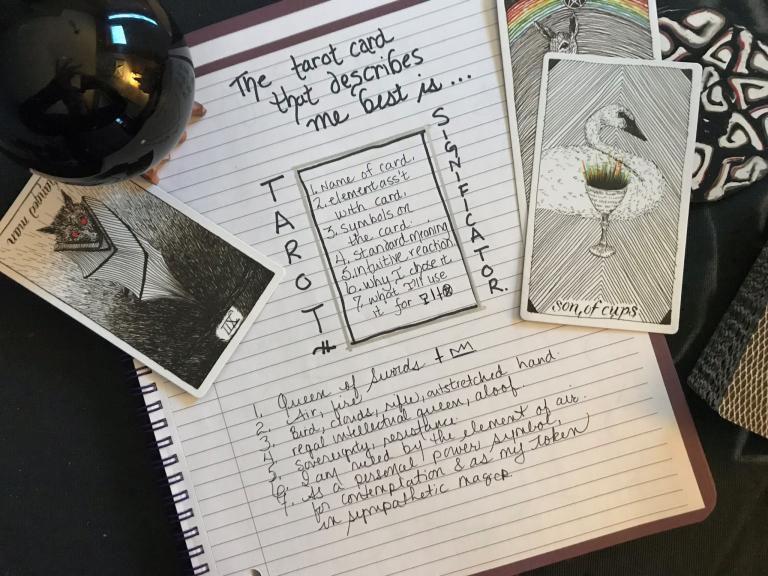 The tarot card
that describes
me best is ...
TAROT
SIGNIFICATOR.
1. Name of card.
2. element ass't
with card.
3. symbols on
the card.
4. standard meaning
5. intuitive reaction
6. why I chose it
7. what I'll use
it for
1. Queen of Swords +
2. Air, fire
3. Bird, clouds, rifle, outstretched hand.
4. regal intellectual queen, aloof.
5. sovereignty, resistance.
6. I am ruled by the element of air.
7. As a personal power symbol,
for contemplation & as my token
in sympathetic magic
(hanged man
XII
son, of cups.